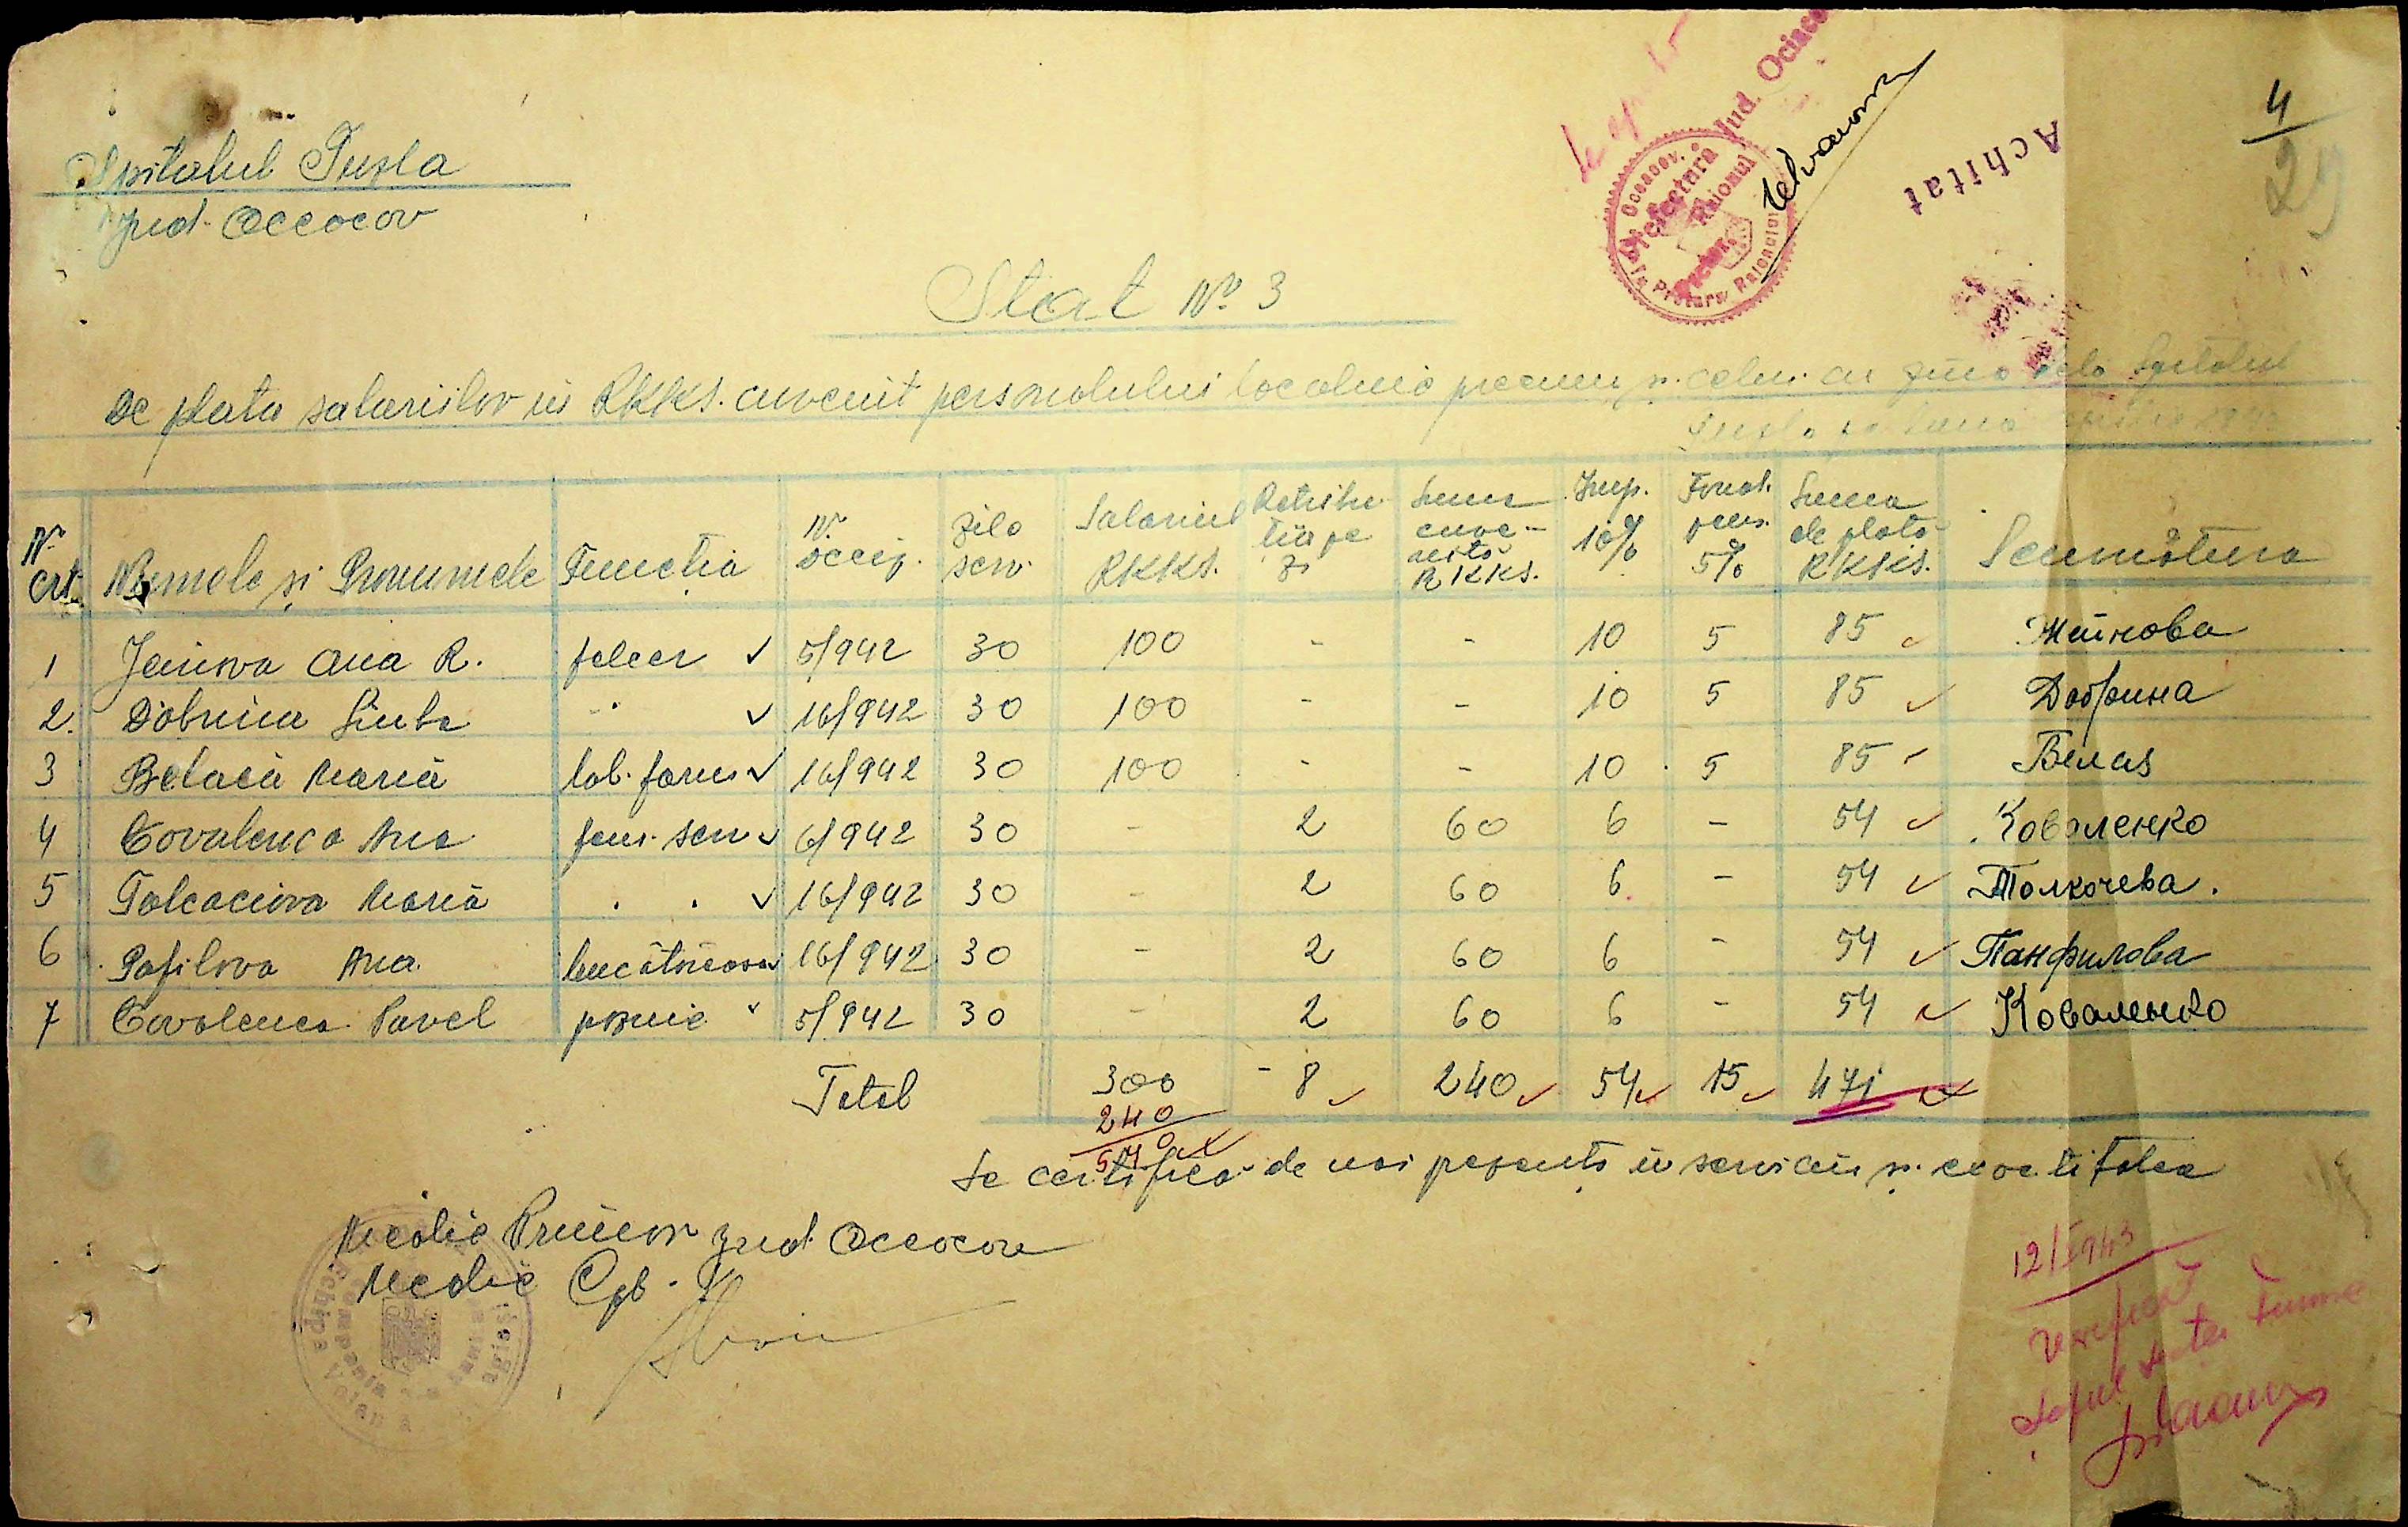 4
Achitat
Jud. Ociacov
Prefectura
Raionul
Spitalul Tusla
Jud. Oceacov
Stat Nº 3
De plata salariilor in RKKS. cuvenit personalului localnic precum si celui cu ziua dela Spitalul
Tusla pe luna aprilie 1943
Nº crt. Numele și Pronumele Functia Nº Zile serv. Salariul RKKS. Retribu tii pe zi Suma cuve-nită RKKS. Imp. 10% Fond. pens. 5% Suma de plată RKKS. Semnătura
1 Jeinova Ana R. felcer ✓ 5/942 30 100 - - 10 5 85 ✓ Жейнова
2. Dobrina Liuba " ✓ 16/942 30 100 - - 10 5 85 ✓ Добрина
3 Belaia Maria lab. farm ✓ 16/942 30 100 - - 10 5 85 ✓ Белая
4 Covalenco Ana fem. serv ✓ 6/942 30 - 2 60 6 - 54 ✓ Коваленко
5 Tolcaciova Maria " " ✓ 16/942 30 - 2 60 6 - 54 ✓ Толкочева.
6 Pafilova Ana. bucătăreasa ✓ 16/942 30 - 2 60 6 - 54 ✓ Панфилова
7 Covolenco Pavel paznic ✓ 5/942 30 - 2 60 6 - 54 ✓ Коваленко
Total 300 - 8 ✓ 240 ✓ 54 ✓ 15 ✓ 471 ✓
240
540 ✓
Se certifică de noi prezența in serviciu și exactitatea
Medic Primar Jud. Oceacov
Medic Cpt.
12/V 943
Verificat